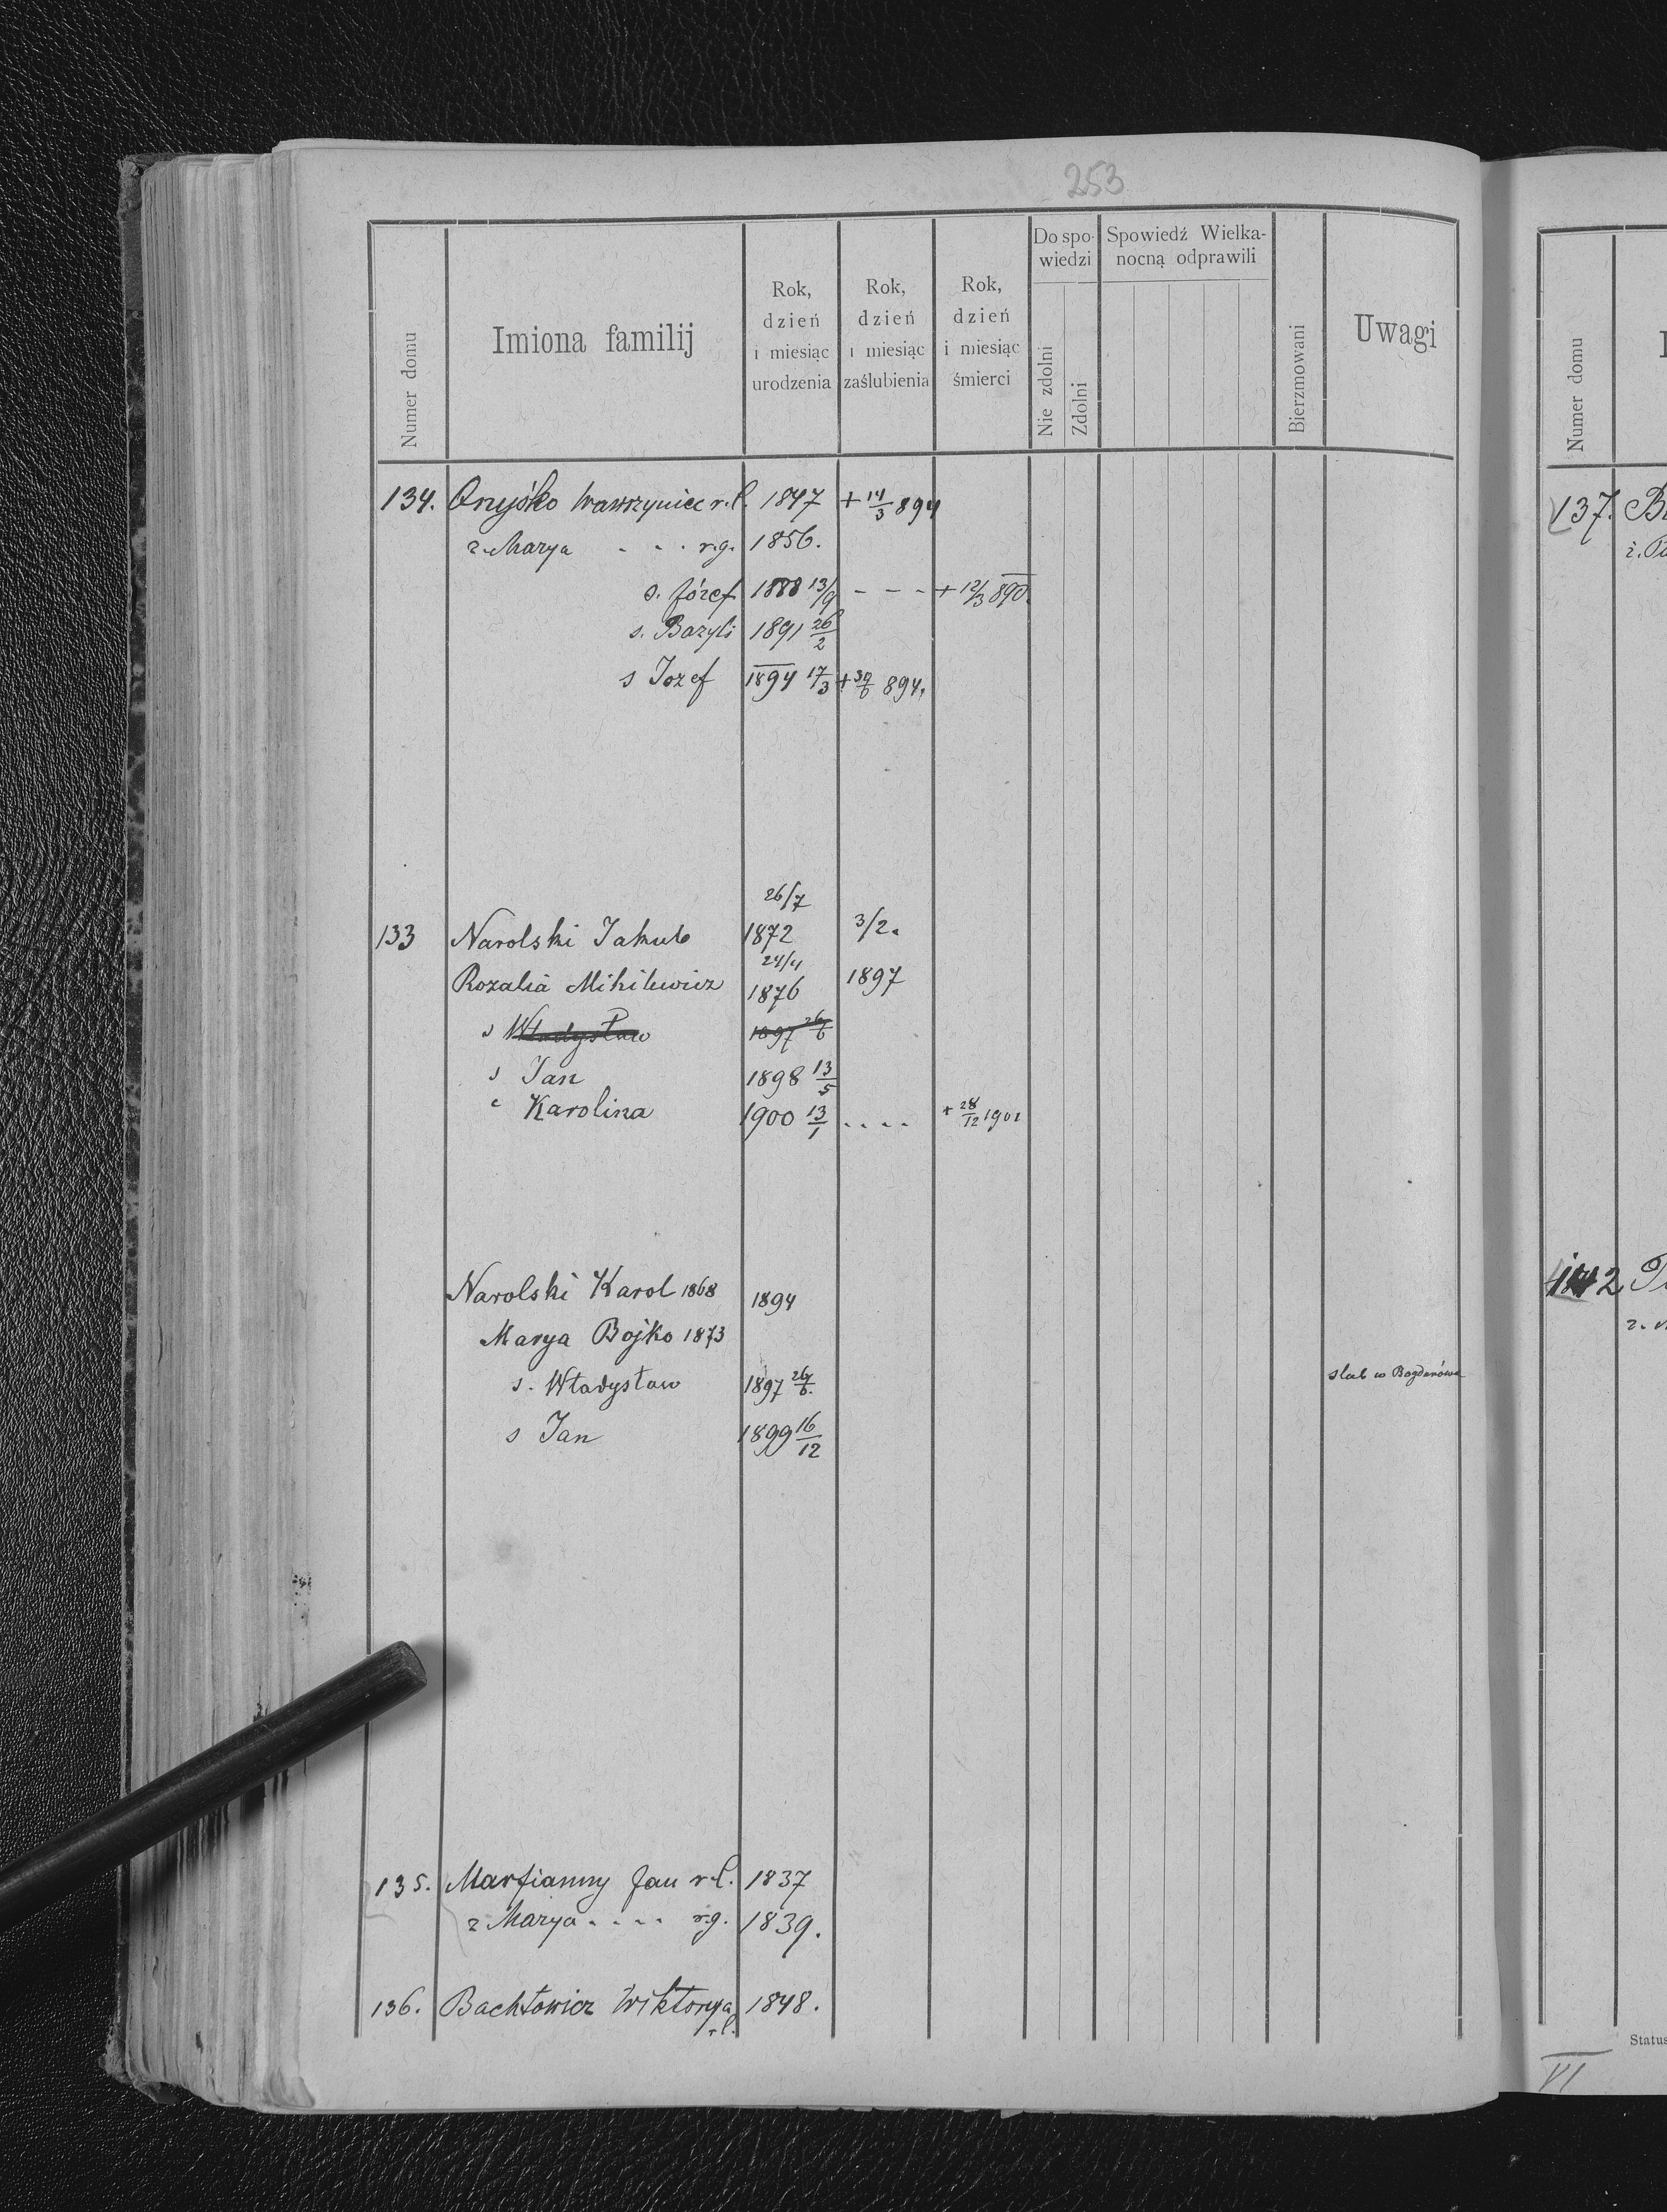 253
Numer domu
Imiona familij
Rok, dzień i miesiąc urodzenia
Rok, dzień i miesiąc zaślubienia
Rok, dzień i miesiąc śmierci
Do spowiedzi
Nie zdolni
Zdolni
Spowiedź Wielkanocną odprawili
Bierzmowani
Uwagi
134. Onyśko Wawrzyniec r.l. 1847 + 14/3 894
ż. Marya . . . r.g. 1856.
s. Józef 1888 13/9 - - - + 12/3 890.
s. Bazyli 1891 26/2
s Jozef 1894 17/3 + 30/6 894.
26/7
133 Narolski Jakub 1872 3/2.
24/4
Rozalia Mikilewicz 1876 1897
s Władysław 1897 26/6
s Jan 1898 13/5
c Karolina 1900 13/1 . . . . + 28/12 1901
Narolski Karol 1868 1894
Marya Bojko 1873
s. Władysław 1897 26/6. slub w Bogdanówce
s Jan 1899 16/12
135. Jan r.l. 1837
ż Marya . . . . r.g. 1839.
136. Bachtowicz Wiktorya 1848.
r.l.
Numer domu
137.
142
Status
VI